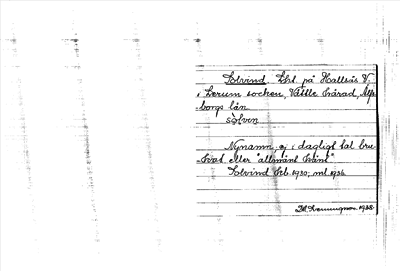 Solvind. Lht. på Hallsås V.
i Lerum socken, Vättle härad, Älfs-
borgs län
sòlven
Nynamn, ej i dagligt tal bru-
kat eller "allmänt känt"
Solvind Jrb. 1930; ml 1936.
1938.